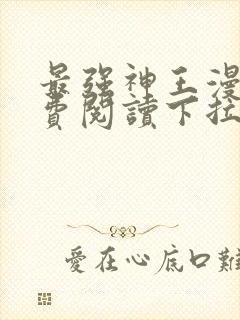 最強神王漫
費閱讀下拉
愛在心底口難